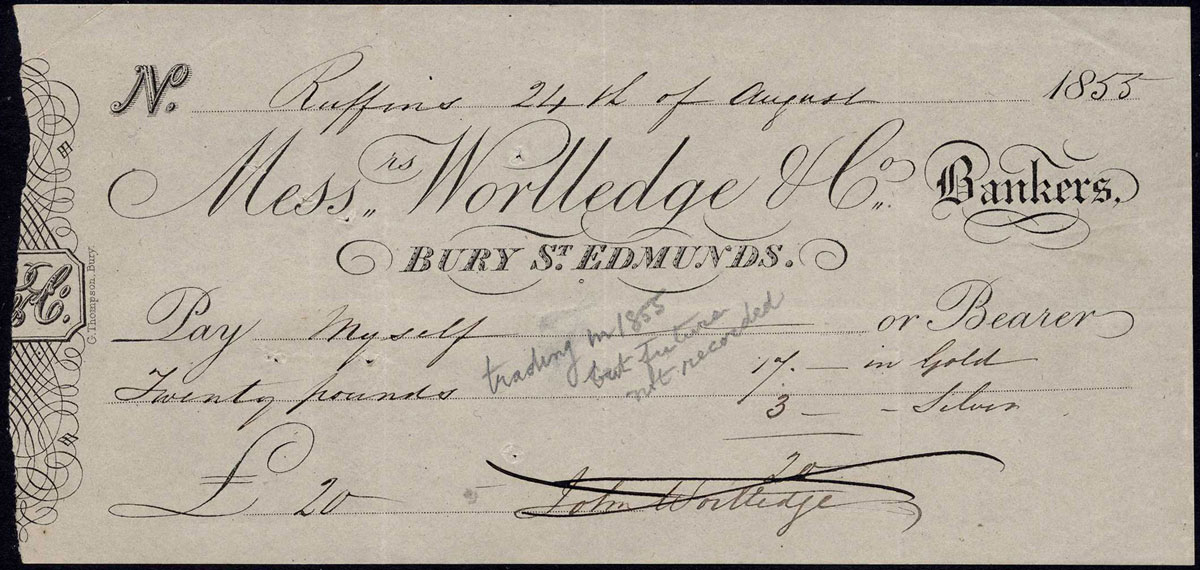 No. Ruffins 24th of August 1855
Messrs Worlledge & Co. Bankers,
BURY ST. EDMUNDS.
Pay Myself or Bearer
Twenty pounds 17. — in Gold
3 — - Silver
20
£ 20 John Worlledge
trading in 1855
but future
not recorded
& Co:
G. Thompson, Bury.